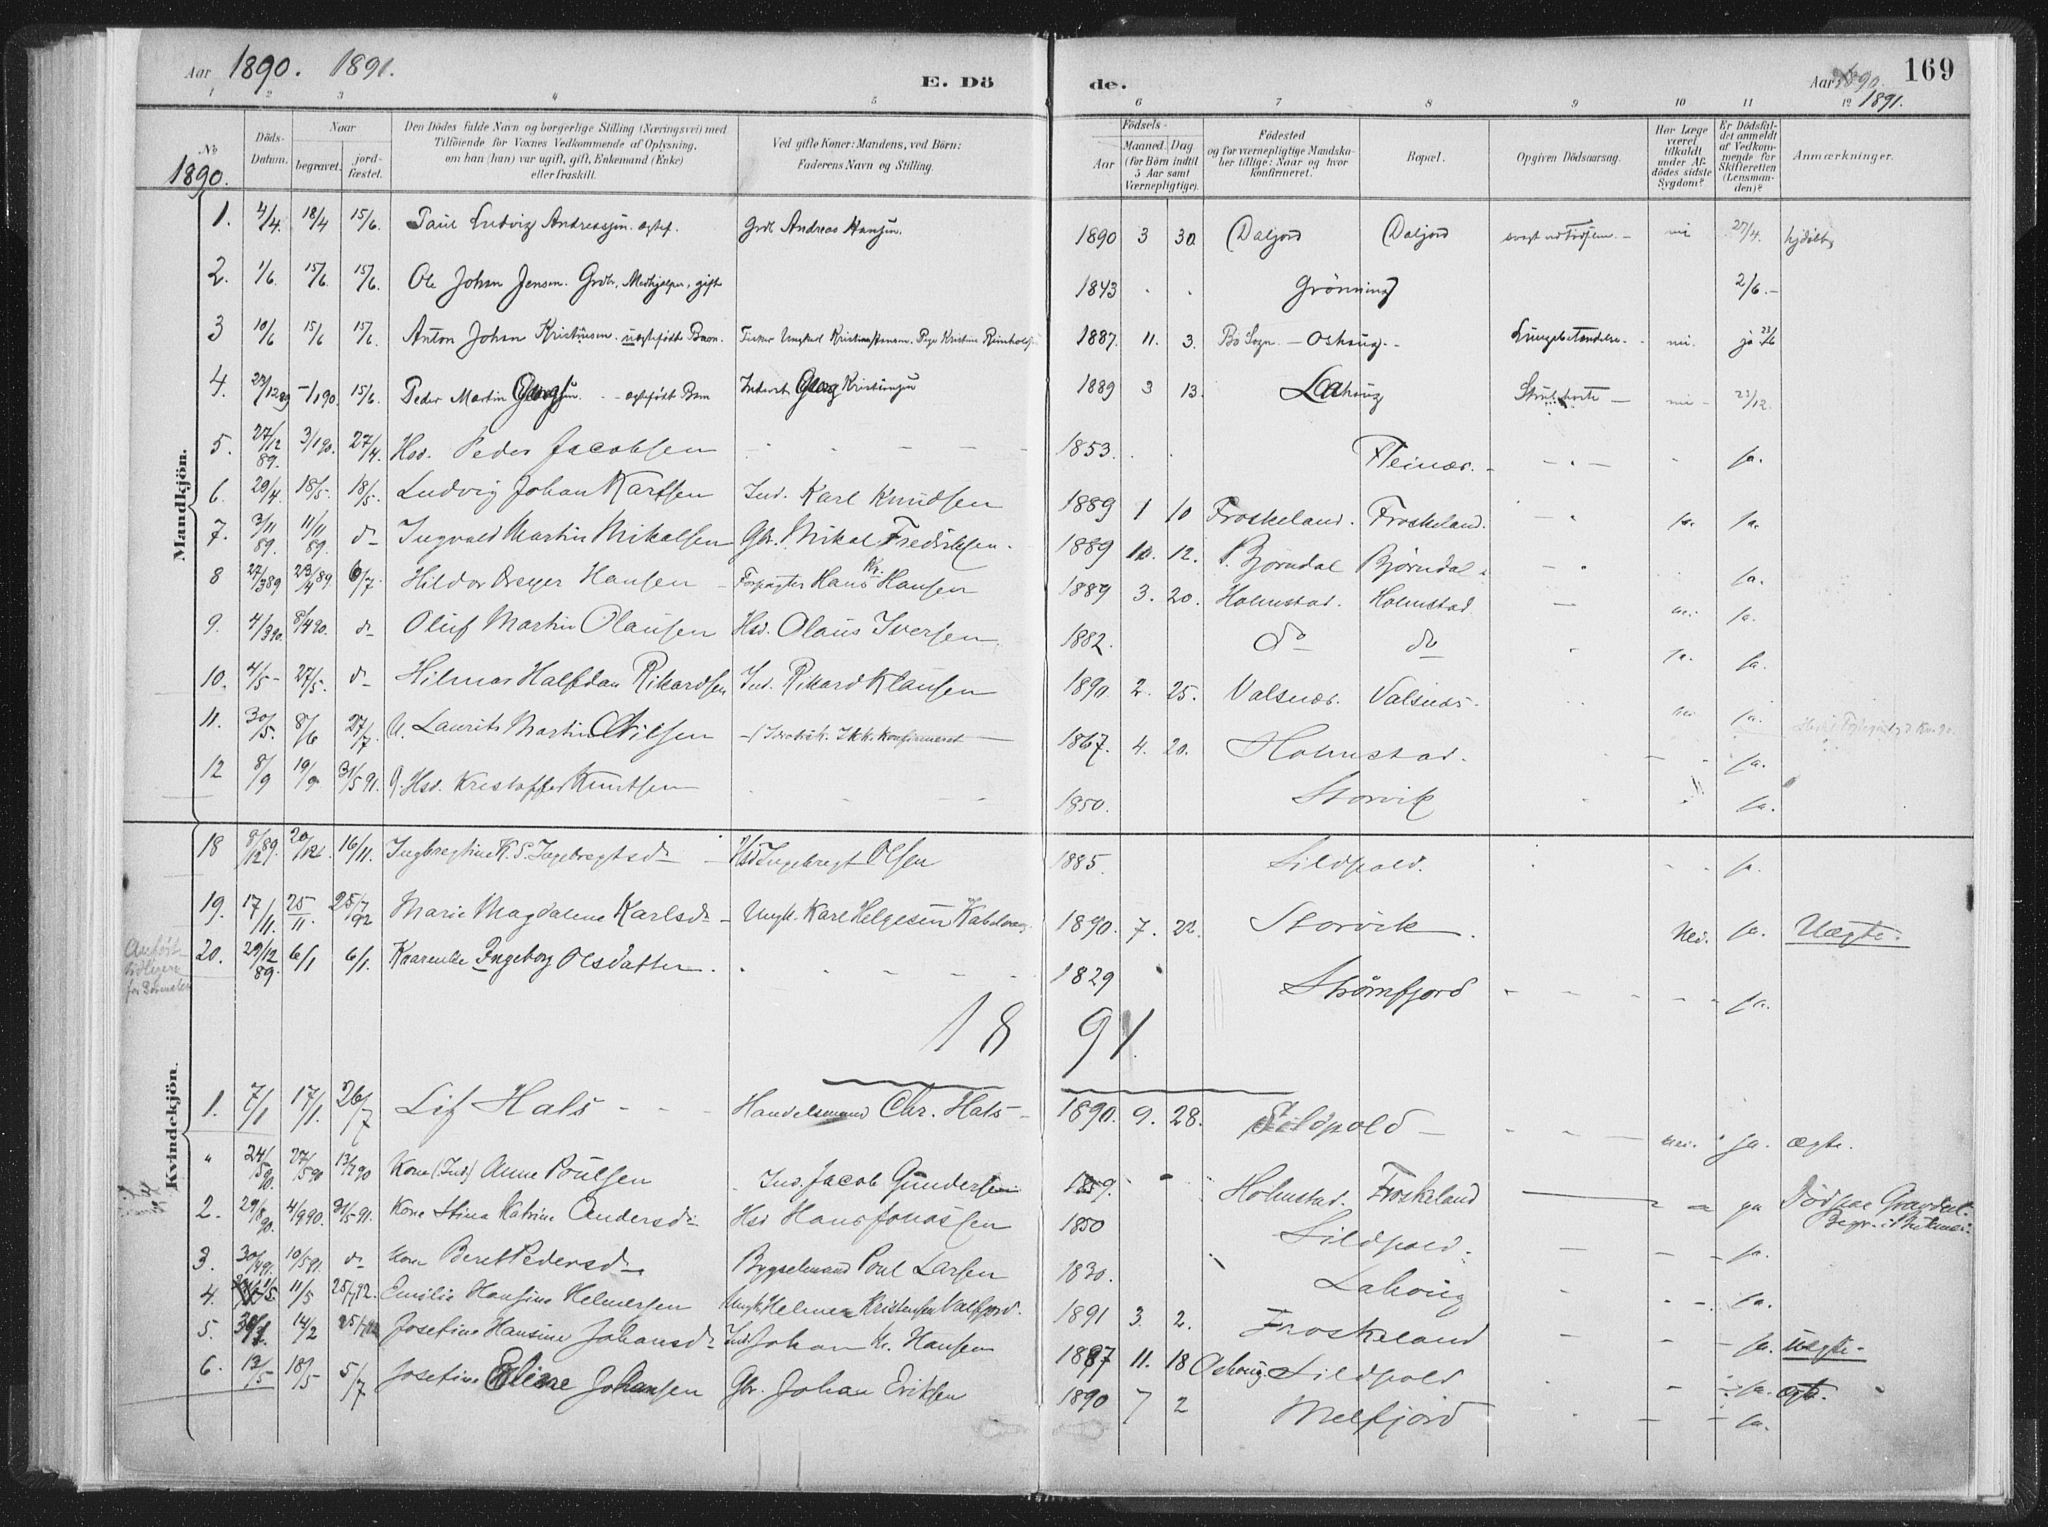 Aar 1890. 1891.
E. Dö
de.
Aar 1890. 1891.
169
1 2 3 4 5 6 7 8 9 10 11 12
No
Döds-Datum.
Naar
begravet.
jord-fæstet.
Den Dödes fulde Navn og borgerlige Stilling (Næringsvei) med Tilföiende for Voxnes Vedkommende af Oplysning, om han (hun) var ugift, gift, Enkemand (Enke) eller fraskilt.
Ved gifte Koner: Mandens, ved Börn: Faderens Navn og Stilling.
Födsels-
Aar
Maaned. Dag
(for Börn indtil 5 Aar samt Værnepligtige).
Födested og for værnepligtige Mandskaber tillige: Naar og hvor konfirmeret.
Bopæl.
Opgiven Dödsaarsag.
Har Læge været tilkaldt under Afdödes sidste Sygdom?
Er Dödsfaldet anmeldt af Vedkommende for Skifteretten (Lensmanden)?
Anmærkninger.
1890.
Mandkjön.
1. 4/4. 18/4 15/6. Paul Ludvig Andreassen. ægtef. Grdb. Andreas Hansen. 1890 3 30. Daljord Daljord nei 27/4. hjdøbt
2. 1/6. 15/6. 15/6. Ole Johan Jensen. Grdbr, Medhjelper, gift 1843 Grönning 2/6.-
3 10/6 15/6 15/6. Anton Johan Kristiansen. uægtefødt Barn. Fisker Ungkarl Kristian Pige Kristine 1887. 11. 3. Bø Sogn - Oshaug - Lungebetændelse. nei. ja 23/6
4. 23/12 89 -/1 90. 15/6. Peder Martin Georgsen. - ægtefødt Barn Inderst Georg Kristiansen 1889 3 13. Lahaug Strubehoste - nei - 23/12.
5. 27/12 89. 3/1 90. 27/4. Hsd. Peder Jacobsen 1853. Fleines. - ja.
6. 29/4. 18/5. 18/5. Ludvig Johan Karlsen Ind. Karl Knudsen 1889 1 10 Froskeland. Froskeland. ja. ja.
7. 3/11 89. 11/11 89. do Ingvald Martin Mikalsen Gbr. Mikal Fredriksen. 1889 10. 12. Bjørndal Bjørndal ja.
8 27/3 89 23/4 89. 6/7. Hildor Dreyer Hansen - Forpagter Hans Kr. Hansen 1889 3. 20. Holmstad. Holmstad nei ja.
9. 4/3 90. 8/4 90. do Oluf Martin Olausen Hsd. Olaus Iversen. 1882. do do ja. ja.
10. 4/5 - 27/5. do Hilmar Halfdan Rikardsen Ind. Rikard Klausen 1890. 2. 25. Valsnæs. Valsnæs. nei ja.
11. 30/5. 8/6 27/7. U. Laurits Martin Nilsen Ikke konfirmeret 1867. 4. 20. Holmstad. ja.
12 8/9 19/9 31/5 91. G. Hsd. Kristoffer Knutsen 1850. Storvik ja.
18 8/12 89. 20/12. 16/11. Ingbregtine K. S. Ingebregtsdr Hsd Ingebregt Olsen 1885. Sildpold. ja.
19. 17/11. 25/11. 25/7 92 Marie Magdalena Karlsdr - Ungk. Karl Helgesen Kabelvaag 1890. 7. 22. Storvik. Nei. ja. Uægte.
Anført tidligere
20. 29/12 89. 6/1 6/1. Kaarenlie Ingeborg Olsdatter. 1829 Strømfjord ja.
1891.
Kvindekjön.
1. 7/1 17/1. 26/7 Lif Hals Handelsmand Chr. Hals 1890. 9. 28. Sildpold - nei. ja. ægte.
" 24/5 90. 27/5 90 13/7 90 Kone (Ind.) Anne Poulsen Ind. Jacob Gundersen 1859. Holmstad. Froskeland ja
2. 29/8 90. 4/9 90. 31/5 91. Kone Stina Katrine Andersdr Hsd Hans Jonassen 1850 Sildpold. ja.
3. 30/4 91. 10/5 91. do Kone Beret Pedersdr. Bygselmand Poul Larsen 1830. Lahoug ja.
4. 1/5. 11/5 25/7 92. Emilie Hansine Helmersen Ungk. Helmer Kristensen Valfjord. 1891 3. 2. Froskeland ja. uægte
5. 14/2 25/7 Josefine Hansine Johansdr Ind Johan Kr. Hansen 1887 11. 18 Oshoug Sildpold ja. ægte.
6. 13/5 18/5 5/7 Josefine Eline Johansen Gbr. Johan Eriksen 1890 7 2 Melfjord ja.